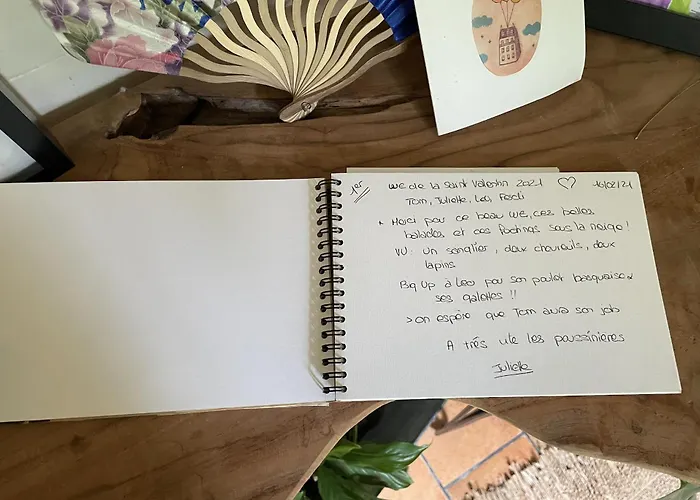 1er WE de la Saint Valentin 2021 ♡ 16/02/21
Tom, Juliette, Leo, Ferdi
* Merci pour ce beau WE, ces belles
balades et ces footings sous la neige !
VU : un sanglier, deux chevreuils, deux
lapins
Big Up à Leo pou son poulet basquaise &
ses galettes !!
> on espère que Tom aura son job
A très vite les poussinières
Juliette